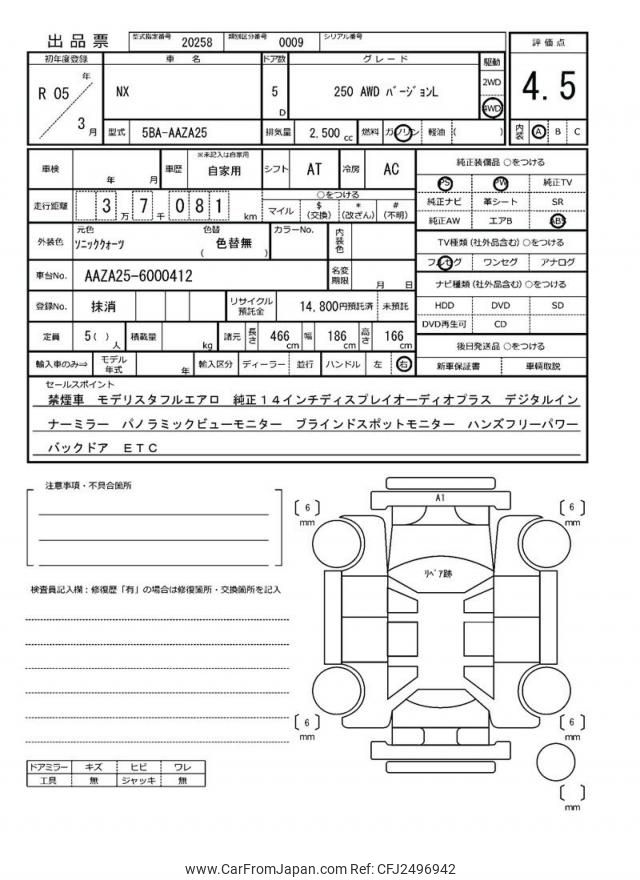 出品票 型式指定番号 20258 類別区分番号 0009 シリアル番号
評価点
4.5
内装 A B C
初年度登録 車名 ドア数 グレード 駆動
R 05 年 3 月 NX 5 D 250 AWD バージョンL 2WD 4WD
型式 5BA-AAZA25 排気量 2,500 cc 燃料 ガソリン 軽油 ( )
車検 年 月 車歴 ※未記入は自家用 自家用 シフト AT 冷房 AC
走行距離 3 万 7 千 0 8 1 km マイル ○をつける $ (交換) * (改ざん) # (不明)
外装色 元色 ソニッククォーツ 色替 色替無 ( ) カラーNo. 内装色
車台No. AAZA25-6000412 名変期限 月 日
登録No. 抹消 リサイクル預託金 14,800円預託済 未預託
定員 5( ) 人 積載量 kg 諸元 長さ 466 cm 幅 186 cm 高さ 166 cm
輸入車のみ⇒ モデル年式 年 輸入区分 ディーラー 並行 ハンドル 左 右
純正装備品 ○をつける
PS PW 純正TV
純正ナビ 革シート SR
純正AW エアB ABS
TV種類(社外品含む) ○をつける
フルセグ ワンセグ アナログ
ナビ種類(社外品含む) ○をつける
HDD DVD SD
DVD再生可 CD
後日発送品 ○をつける
新車保証書 車輌取説
セールスポイント
禁煙車 モデリスタフルエアロ 純正14インチディスプレイオーディオプラス デジタルイン
ナーミラー パノラミックビューモニター ブラインドスポットモニター ハンズフリーパワー
バックドア ETC
注意事項・不具合箇所
検査員記入欄:修復歴「有」の場合は修復箇所・交換箇所を記入
ドアミラー キズ ヒビ ワレ
工具 無 ジャッキ 無
A1
[ 6 ] mm
[ 6 ] mm
リペア跡
[ 6 ] mm
[ 6 ] mm
[ ] mm
www.CarFromJapan.com Ref: CFJ2496942